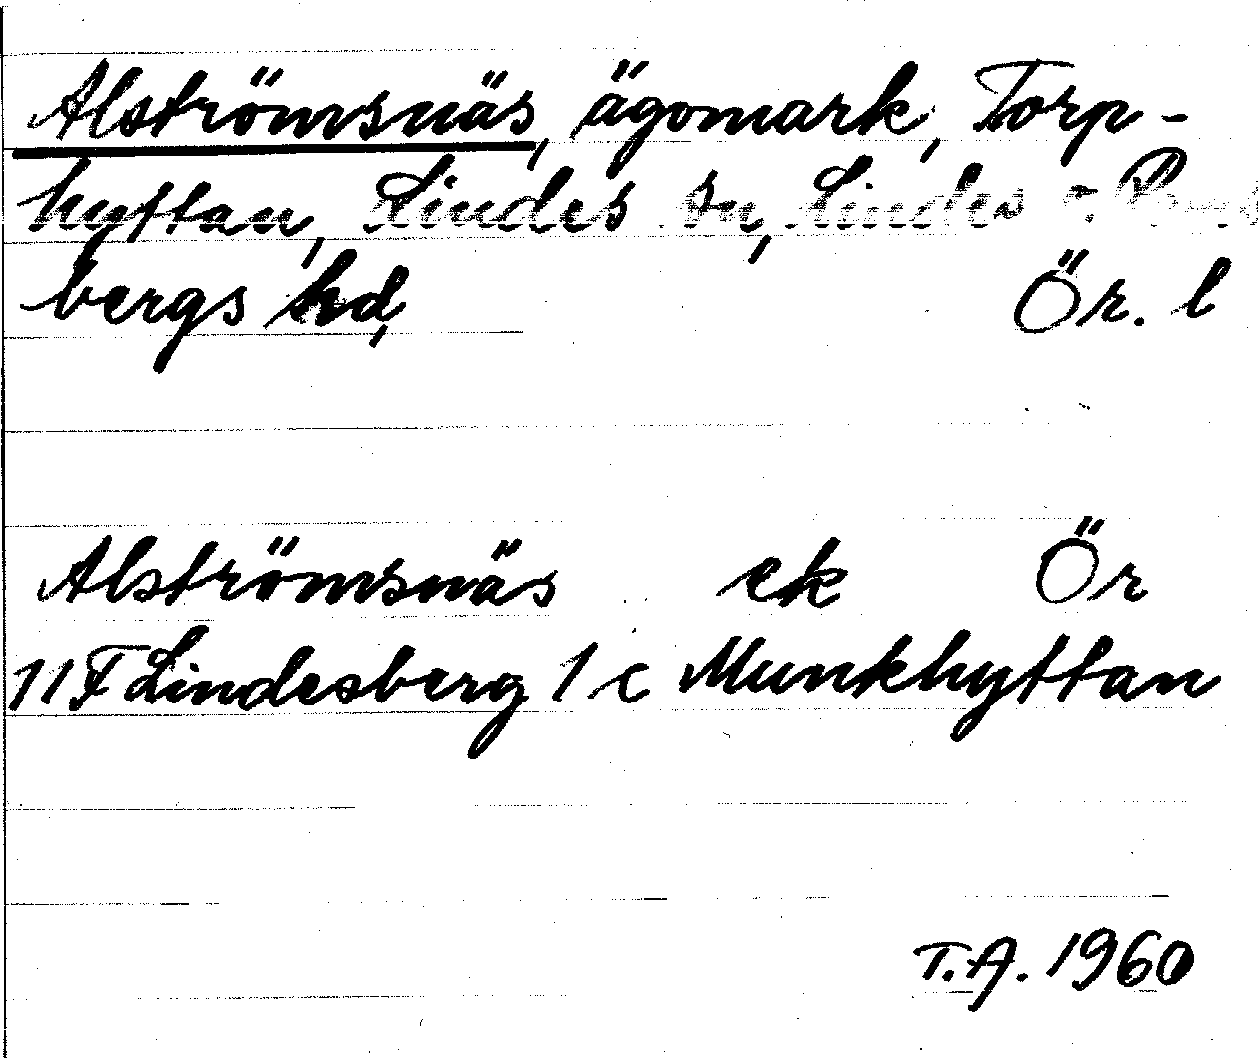 Alströmsnäs, ägomark, Torp-
hyttan, Lindes sn, Lindes o.
bergs hd, Ör. l
Alströmsnäs ek Ör
11F Lindesberg 1 c Munkhyttan
T.A. 1960